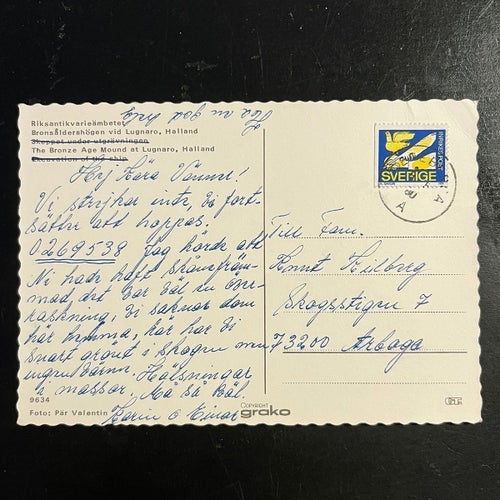 Ha nu god
Riksantikvarieämbetet
Bronsåldershögen vid Lugnaro, Halland
Skeppet under utgrävningen
The Bronze Age Mound at Lugnaro, Halland
Excavation of the ship
Hej Kära Vänner!
Vi stryker inte, vi fort-
sätter att hoppas.
0269538 Jag hörde att
Ni hade haft
var väl en över-
raskning, vi saknar dom
här hemma, här har vi
snart grönt i skogen men
ingen värme. Hälsningar
i massor. Må så väl.
Karin o Einar
9634
Foto: Pär Valentin
COPYRIGHT
grako
INRIKES POST
SVERIGE
Till Fam.
Knut Kilberg
Skogsstigen 7
73200 Arboga